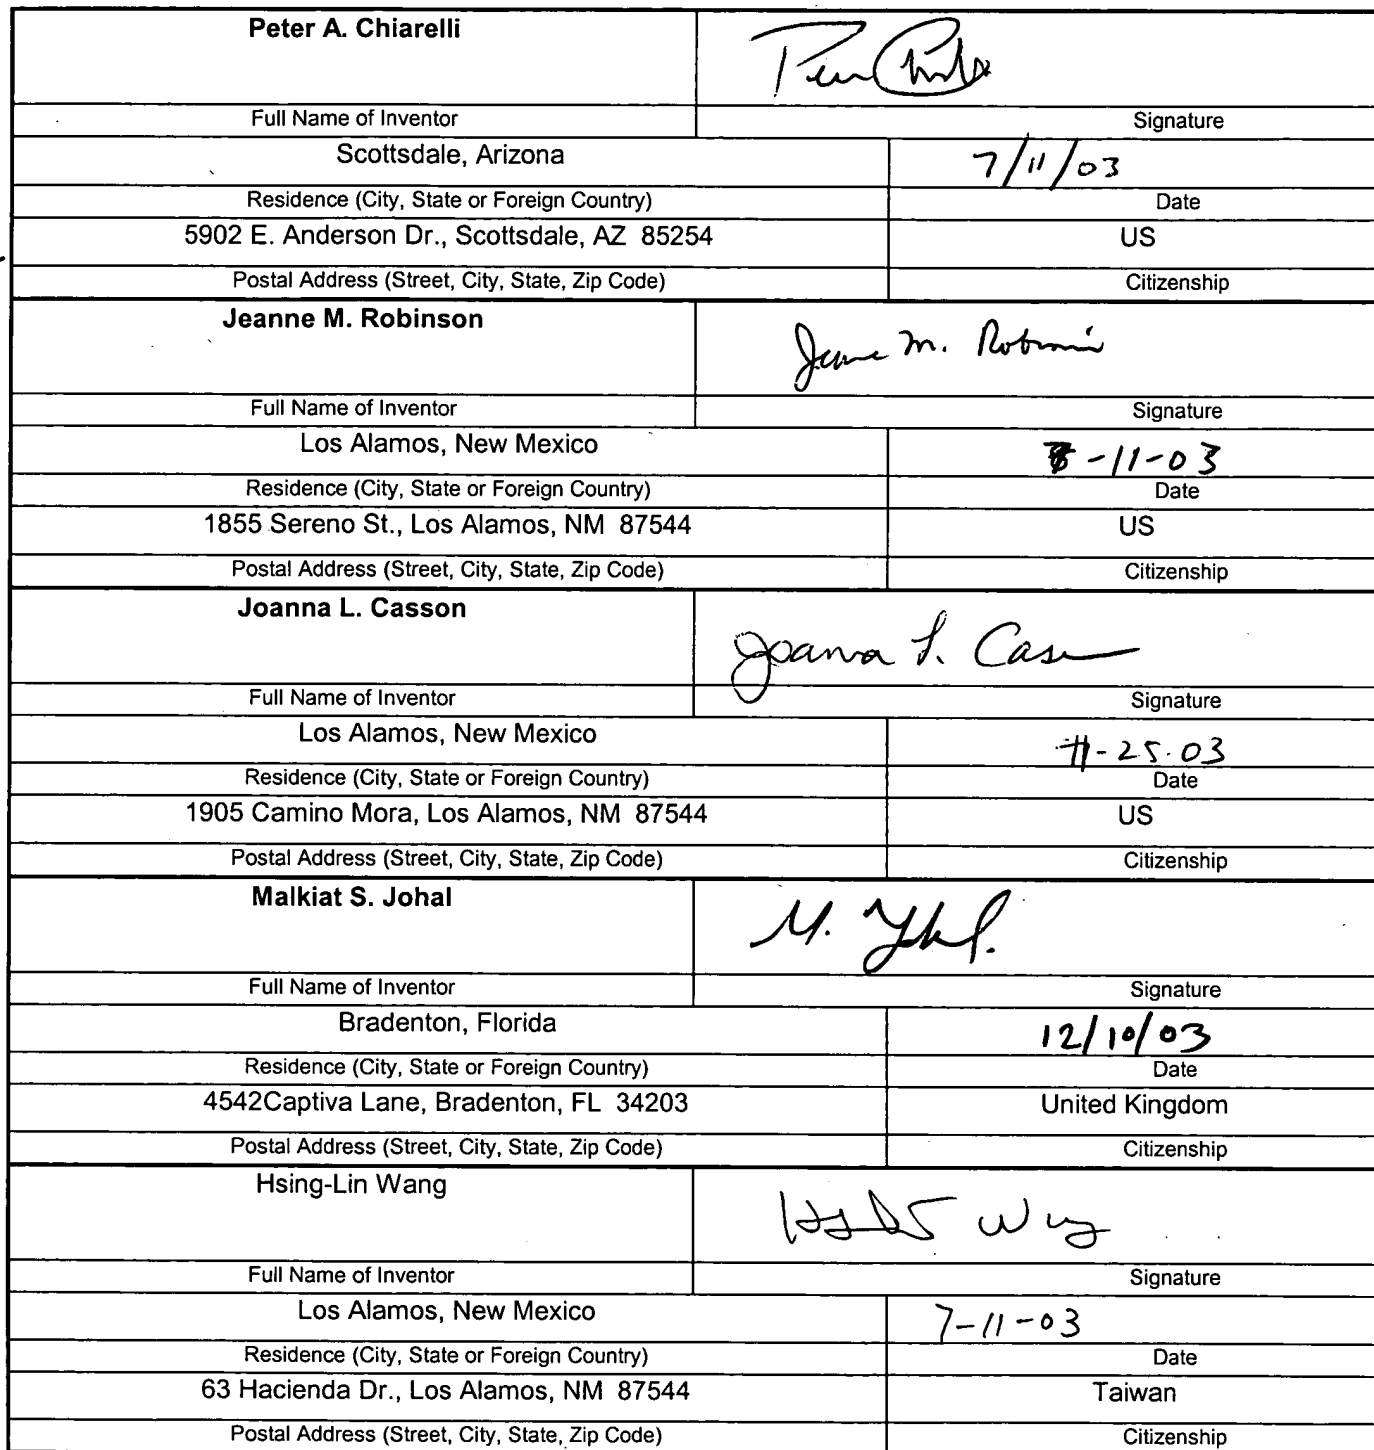 Peter A. Chiarelli
Full Name of Inventor Signature
Scottsdale, Arizona 7/11/03
Residence (City, State or Foreign Country) Date
5902 E. Anderson Dr., Scottsdale, AZ 85254 US
Postal Address (Street, City, State, Zip Code) Citizenship
Jeanne M. Robinson Jeanne M. Robinson
Full Name of Inventor Signature
Los Alamos, New Mexico -11-03
Residence (City, State or Foreign Country) Date
1855 Sereno St., Los Alamos, NM 87544 US
Postal Address (Street, City, State, Zip Code) Citizenship
Joanna L. Casson Joanna L. Casson
Full Name of Inventor Signature
Los Alamos, New Mexico -25-03
Residence (City, State or Foreign Country) Date
1905 Camino Mora, Los Alamos, NM 87544 US
Postal Address (Street, City, State, Zip Code) Citizenship
Malkiat S. Johal M. Johal.
Full Name of Inventor Signature
Bradenton, Florida 12/10/03
Residence (City, State or Foreign Country) Date
4542Captiva Lane, Bradenton, FL 34203 United Kingdom
Postal Address (Street, City, State, Zip Code) Citizenship
Hsing-Lin Wang
Full Name of Inventor Signature
Los Alamos, New Mexico 7-11-03
Residence (City, State or Foreign Country) Date
63 Hacienda Dr., Los Alamos, NM 87544 Taiwan
Postal Address (Street, City, State, Zip Code) Citizenship